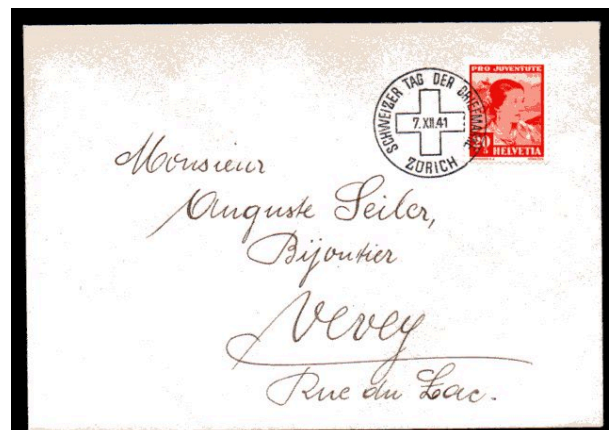 SCHWEIZER TAG DER BRIEFMARKE
7.XII.41
ZÜRICH
PRO JUVENTUTE
20
HELVETIA
Monsieur
Auguste Seiler,
Bijoutier
Vevey
Rue du Lac.